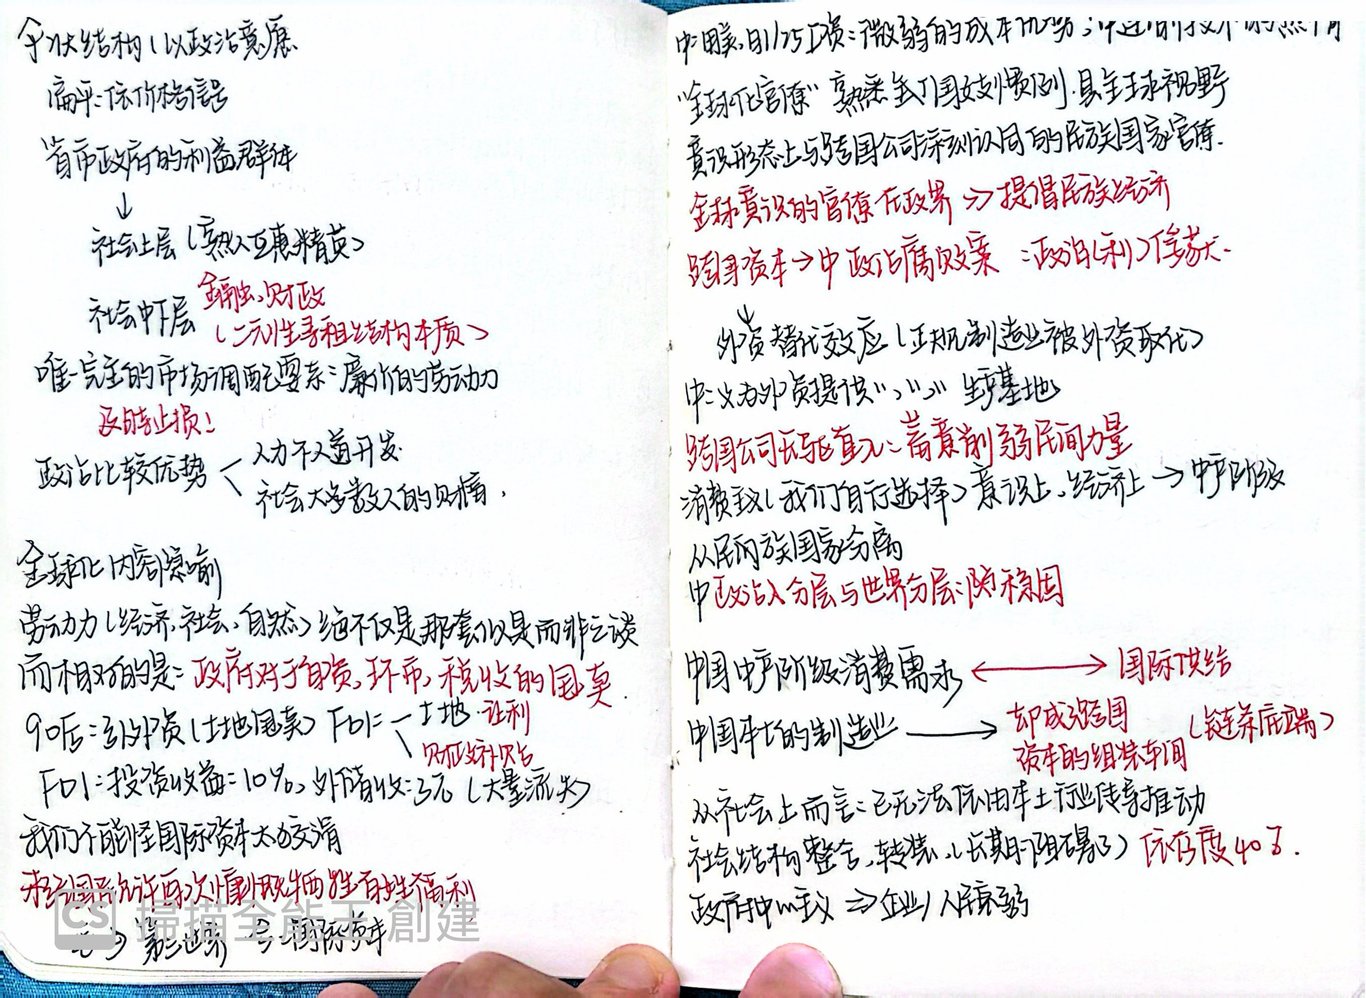 结构(以政治意愿
扁平:依价格信号
省市政府的利益群体
↓
社会上层(熟人互惠精英)
金融、财政
社会中下层(二元性寻租结构本质)
唯一完全的市场调配要素:廉价的劳动力
及时止损!
政治比较优势
人力不人道开发
社会大多数人的财富.
全球化内容隐喻
劳动力(经济,社会,自然)绝不仅是那套似是而非之谈
而相对的是:政府对于自资,环币,税收的
90后:引外资(土地) FDI:土地:让利
财政补贴
FDI:投资收益=10%,外储收:3% (大量流失)
我们不能怪国际资本太狡猾
允许再次牺牲百姓福利
第三世界 国际资本
中:美,日1/25工资:微弱的成本优势;
"全球化官僚"熟悉 惯例.具全球视野
意识形态上与跨国公司深刻认同的民族国家官僚.
全球意识的官僚在政界 => 提倡民族经济
跨国资本→中政治腐败案 :政治(利)俘获.
↓
外资替代效应(正规制造业被外资取代)
中:义为外资提供 生产基地
跨国公司长驱直入:蓄意削弱民间力量
消费主义(我们自行选择)意识上、经济上→中产阶级
从民间族国家分离
中政治入分层与世界分层:隐稳固
中国中产阶级消费需求 ←→ 国际供给
中国本土的制造业 → 却成跨国资本的组装车间 (链条底端)
从社会上而言:已无法依由本土行业传导推动
社会结构整合、转装、(长期的阻碍了)依存度40%.
政府中心主义 => 企业/人民衰弱
掃描全能王 創建